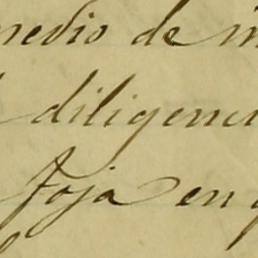 medio de
diligenci
foja en